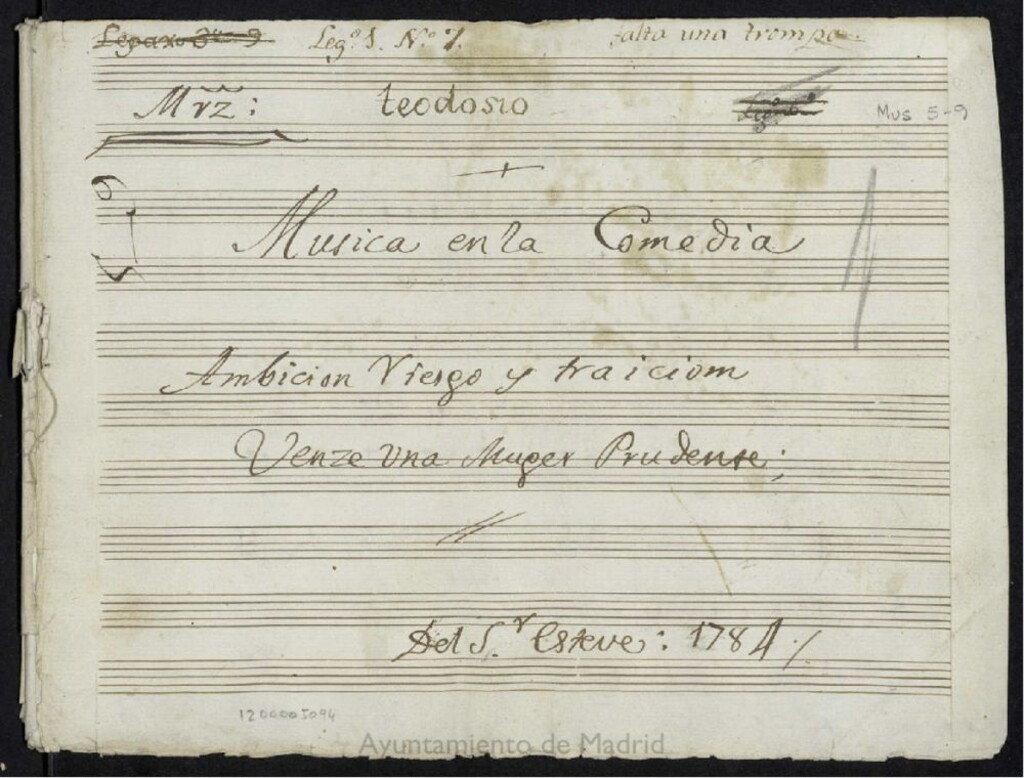 Legaxo 3º 9 Leg.º 1. N.º 7. falta una trompa.
Mrz: teodosio Mus 5-9
5-9
Musica en la Comedia
Ambicion Riesgo y traiciom
Venze vna Muger Prudente;
Del S.r Esteve: 1784
1200005094
Ayuntamiento de Madrid